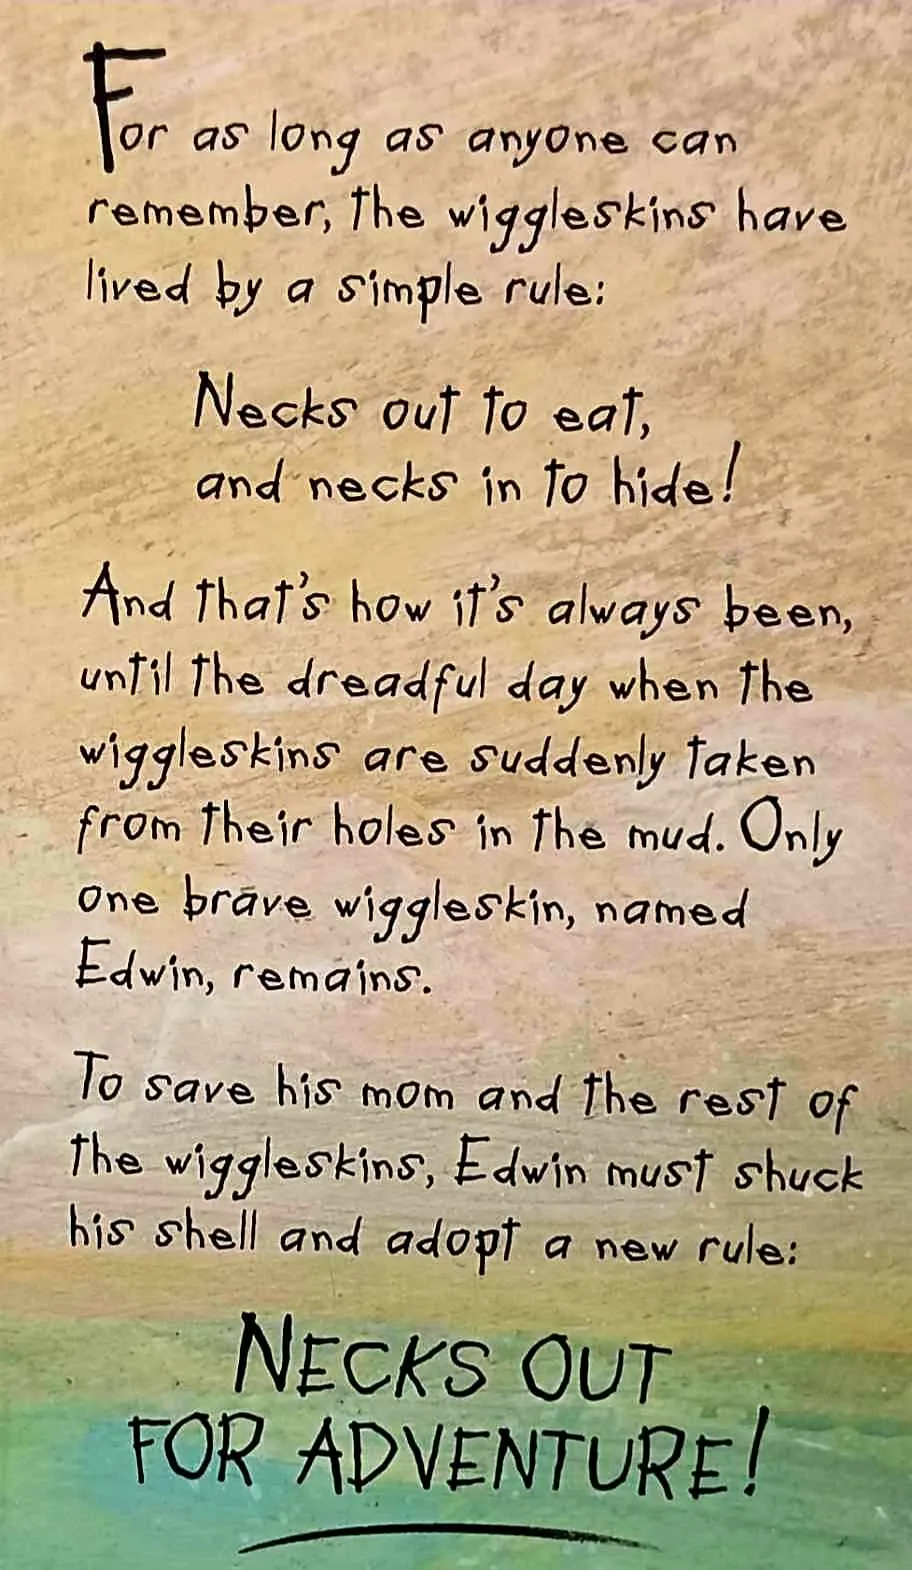 For as long as anyone can
remember, the wiggleskins have
lived by a simple rule:
Necks out to eat,
and necks in to hide!
And that's how it's always been,
until the dreadful day when the
wiggleskins are suddenly taken
from their holes in the mud. Only
one brave wiggleskin, named
Edwin, remains.
To save his mom and the rest of
the wiggleskins, Edwin must shuck
his shell and adopt a new rule:
NECKS OUT
FOR ADVENTURE!